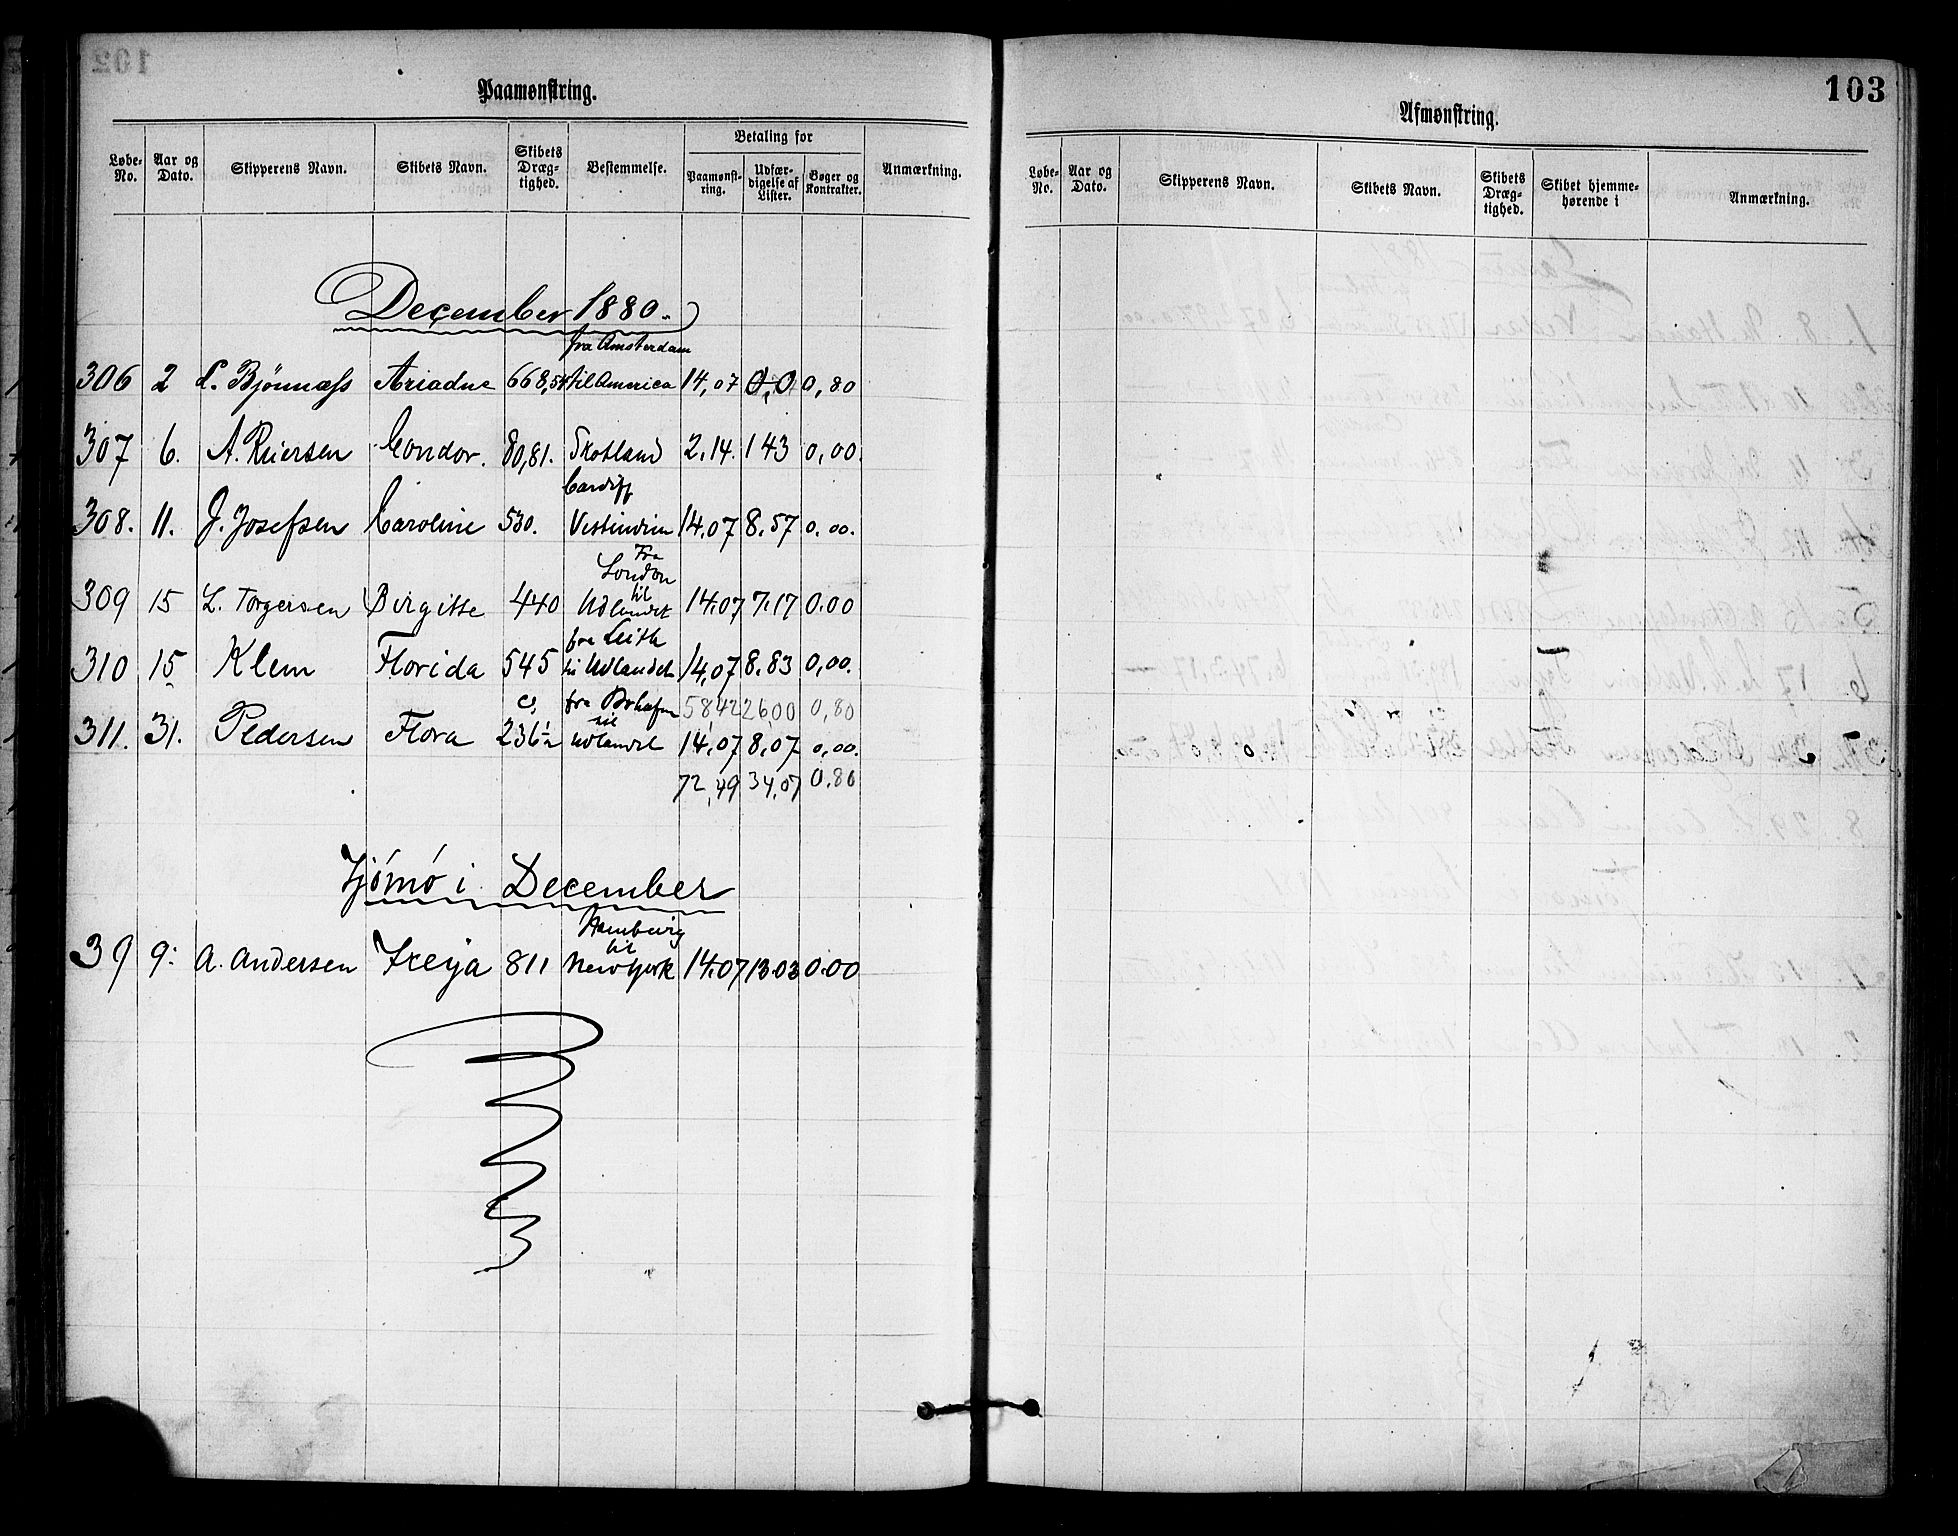 Paamønstring.
Løbe-No. Aar og Dato. Skipperens Navn. Skibets Navn. Skibets Dræg-tighed. Bestemmelse. Betaling for Paamønst-ring. Udfær-digelse af Lister. Bøger og Kontrakter. Anmærkning.
December 1880.
fra Amsterdam
306 2 L. Bjønnæss Ariadne 668,54 til America 14,07 0,0 0,80
307 6. A. Reiersen Condor. 80,81. Skotland 2,14. 143 0,00.
Cardiff
308. 11. J. Josefsen Caroline 530. Vestindien 14,07 8,57 0,00.
Fra
London
til
309 15 L. Torgersen Birgitte 440 Udlandet 14,07 7,17 0.00
fra Leith
310 15 Klem Florida 545 til Udlandet 14,07 8,83 0,00.
fra 58,42 26,00 0,80
til
311. 31. Pedersen Flora 236½ Udlandet 14,07 8,07 0,00.
72,49 34,07 0,80
Tjømø i December
Hamburg
til
39 9. A. Andersen Freya 811 New York 14,07 13,03 0.00
103
Afmønstring.
Løbe-No. Aar og Dato. Skipperens Navn. Skibets Navn. Skibets Dræg-tighed. Skibet hjemme-hørende i Anmærkning.